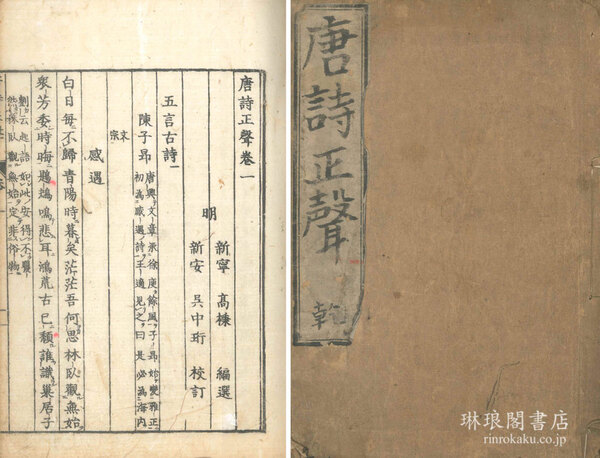 唐詩正聲卷一
明
新寧 高棅 編選
新安 吳中珩 校訂
五言古詩一
陳子昂
唐興文章承徐庾餘風子昂始變雅正
初為感遇詩王適見之曰是必為海內
文宗
感遇
白日每不歸青陽時暮矣茫茫吾何思林臥觀無始
衆芳委時晦鶗鴂鳴悲耳鴻荒古已頹誰識巢居子
劉云起語如此安得不
林臥觀無始定非俗物
唐詩正聲 乾
琳琅閣書店
rinrokaku.co.jp